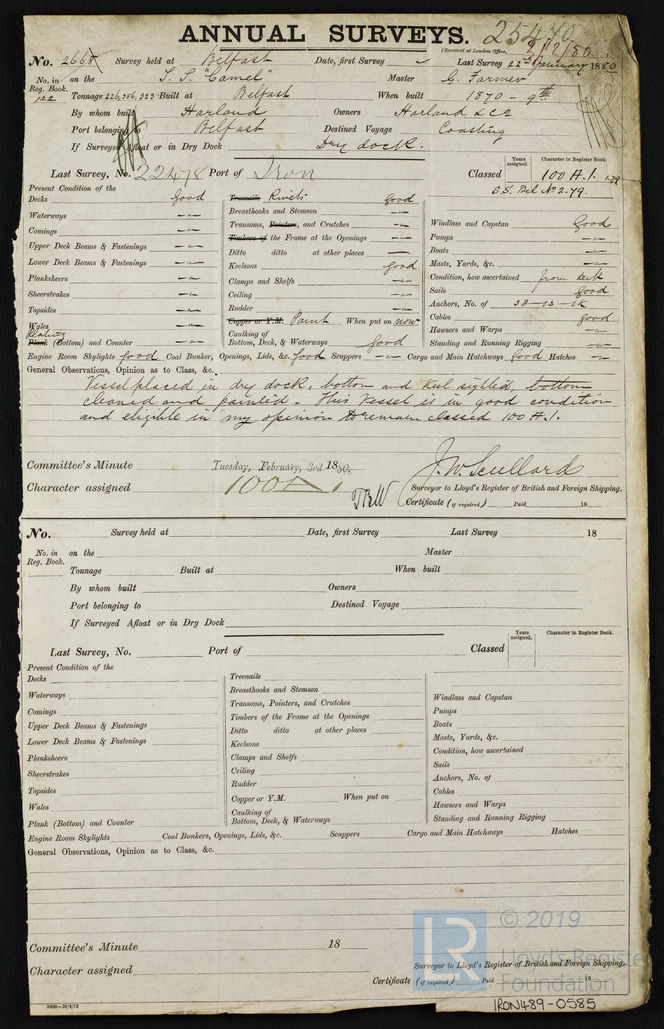 ANNUAL SURVEYS. 25440
(Received at London Office, 3/2/80
No. 2668 Survey held at Belfast Date, first Survey Last Survey 22nd January 1880
No. in Reg. Book. 122 on the S.S. "Camel" Master G. Farmer
Tonnage 226,306,323 Built at Belfast When built 1870 - 9th
By whom built Harland Owners Harland & Co
Port belonging to Belfast Destined Voyage Coasting
If Surveyed Afloat or in Dry Dock Dry dock.
Years assigned. Character in Register Book.
Last Survey, No. 22478 Port of Iron Classed 100 A.1. 1,79
S.S. Bel No 2-79.
Present Condition of the
Decks Good
Waterways —"—
Comings —"—
Upper Deck Beams & Fastenings —"—
Lower Deck Beams & Fastenings —"—
Planksheers —"—
Sheerstrakes —"—
Topsides —"—
Wales —"—
Plating
Plank (Bottom) and Counter —"—
Treenails Rivets Good
Breasthooks and Stemson —"—
Transoms, Pointers, and Crutches —"—
Timbers of the Frame at the Openings —"—
Ditto ditto at other places —"—
Keelsons Good
Clamps and Shelfs —"—
Ceiling —"—
Rudder —"—
Copper or Y.M. Paint When put on now
Caulking of Bottom, Deck, & Waterways Good
Windlass and Capstan Good
Pumps —"—
Boats —"—
Masts, Yards, &c. —"—
Condition, how ascertained from deck
Sails Good
Anchors, No. of 3B-1S-1K
Cables Good
Hawsers and Warps —"—
Standing and Running Rigging —"—
Engine Room Skylights Good Coal Bunker, Openings, Lids, &c. Good Scuppers —"— Cargo and Main Hatchways Good Hatches —"—
General Observations, Opinion as to Class, &c.
Vessel placed in dry dock, bottom and keel sighted, bottom
cleaned and painted. This Vessel is in good condition
and eligible in my opinion to remain classed 100 A.1.
Committee's Minute Tuesday, February, 3rd 1880.
Character assigned 100A1
J.W. Scullard
TBW
Surveyor to Lloyd's Register of British and Foreign Shipping.
Certificate (if required) Paid 18
No. Survey held at Date, first Survey Last Survey 18
No. in Reg. Book. on the Master
Tonnage Built at When built
By whom built Owners
Port belonging to Destined Voyage
If Surveyed Afloat or in Dry Dock
Years assigned. Character in Register Book.
Last Survey, No. Port of Classed
Present Condition of the
Decks
Waterways
Comings
Upper Deck Beams & Fastenings
Lower Deck Beams & Fastenings
Planksheers
Sheerstrakes
Topsides
Wales
Plank (Bottom) and Counter
Treenails
Breasthooks and Stemson
Transoms, Pointers, and Crutches
Timbers of the Frame at the Openings
Ditto ditto at other places
Keelsons
Clamps and Shelfs
Ceiling
Rudder
Copper or Y.M. When put on
Caulking of Bottom, Deck, & Waterways
Windlass and Capstan
Pumps
Boats
Masts, Yards, &c.
Condition, how ascertained
Sails
Anchors, No. of
Cables
Hawsers and Warps
Standing and Running Rigging
Engine Room Skylights Coal Bunkers, Openings, Lids, &c. Scuppers Cargo and Main Hatchways Hatches
General Observations, Opinion as to Class, &c.
Committee's Minute 18
Character assigned
Surveyor to Lloyd's Register of British and Foreign Shipping.
Certificate (if required) Paid 18
LR © 2019
Lloyd's Register
Foundation
IRON489-0585